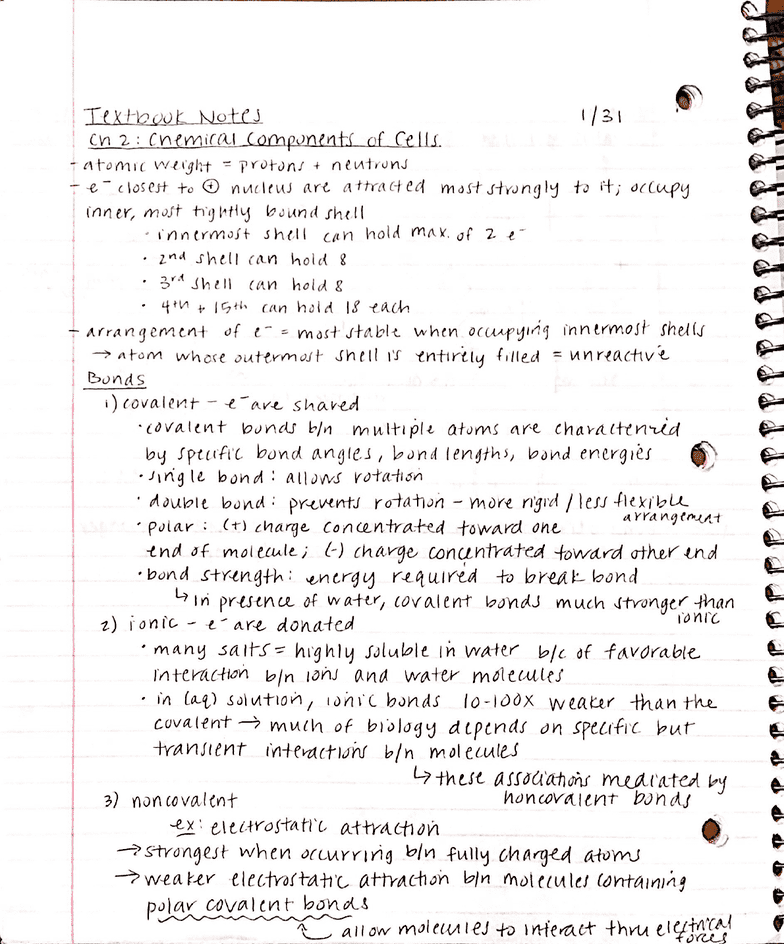 Textbook Notes 1/31
Ch 2: Chemical Components of Cells
- atomic weight = protons + neutrons
- e⁻ closest to ⊕ nucleus are attracted most strongly to it; occupy
inner, most tightly bound shell
· innermost shell can hold max. of 2 e⁻
· 2nd shell can hold 8
· 3rd shell can hold 8
· 4th + 15th can hold 18 each
- arrangement of e⁻ = most stable when occupying innermost shells
→ atom whose outermost shell is entirely filled = unreactive
Bonds
1) covalent - e⁻ are shared
· covalent bonds b/n multiple atoms are characterized
by specific bond angles, bond lengths, bond energies
· single bond: allows rotation
· double bond: prevents rotation - more rigid / less flexible
arrangement
· polar: (+) charge concentrated toward one
end of molecule; (-) charge concentrated toward other end
· bond strength: energy required to break bond
↳ in presence of water, covalent bonds much stronger than
ionic
2) ionic - e⁻ are donated
· many salts = highly soluble in water b/c of favorable
interaction b/n ions and water molecules
· in (aq) solution, ionic bonds 10-100X weaker than the
covalent → much of biology depends on specific but
transient interactions b/n molecules
↳ these associations mediated by
noncovalent bonds
3) noncovalent
ex: electrostatic attraction
→ strongest when occurring b/n fully charged atoms
→ weaker electrostatic attraction b/n molecules containing
polar covalent bonds
↑ allow molecules to interact thru electrical
forces